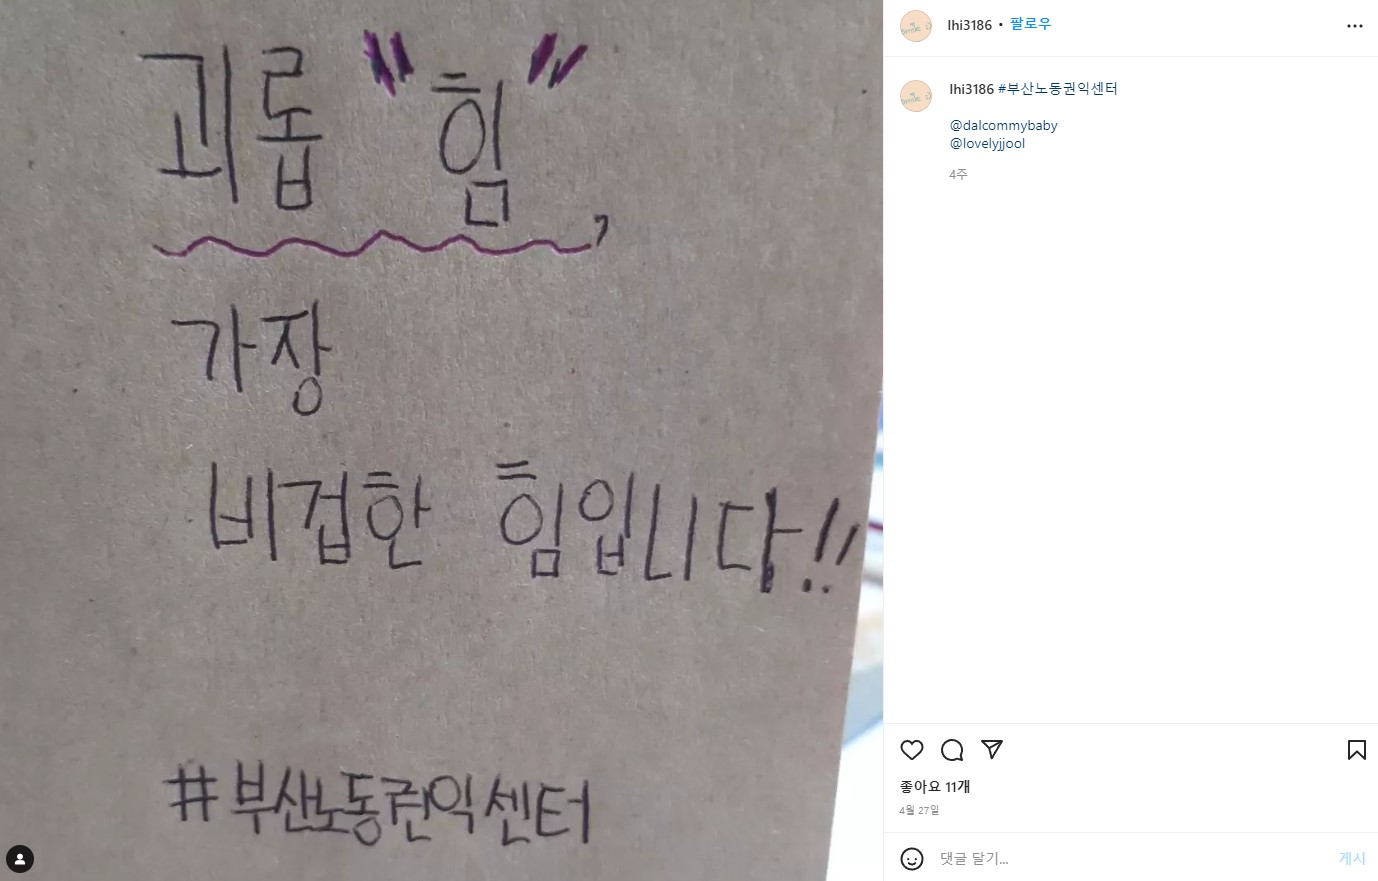 괴롭 "힘",
가장
비겁한 힘입니다!!
#부산노동권익센터
lhi3186 • 팔로우
lhi3186 #부산노동권익센터
@dalcommybaby
@lovelyjjool
4주
좋아요 11개
4월 27일
댓글 달기...
게시